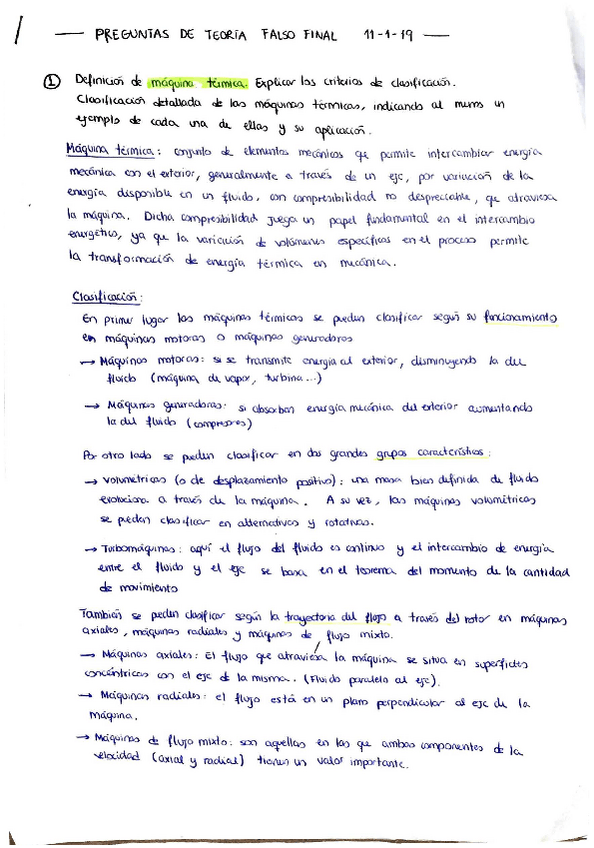 PREGUNTAS DE TEORÍA FALSO FINAL 11-1-19
① Definición de máquina térmica. Explicar los criterios de clasificación.
Clasificación detallada de las máquinas térmicas, indicando al menos un
ejemplo de cada una de ellas y su aplicación.
Máquina térmica: conjunto de elementos mecánicos que permite intercambiar energía
mecánica con el exterior, generalmente a través de un eje, por variación de la
energía disponible en un fluido, con compresibilidad no despreciable, que atraviesa
la máquina. Dicha compresibilidad juega un papel fundamental en el intercambio
energético, ya que la variación de volúmenes específicos en el proceso permite
la transformación de energía térmica en mecánica.
Clasificación:
En primer lugar las máquinas térmicas se pueden clasificar según su funcionamiento
en máquinas motoras o máquinas generadoras
→ Máquinas motoras: si se transmite energía al exterior, disminuyendo la del
fluido (máquina de vapor, turbina...)
→ Máquinas generadoras: si absorben energía mecánica del exterior aumentando
la del fluido (compresores)
Por otro lado se pueden clasificar en dos grandes grupos característicos:
→ Volumétricas (o de desplazamiento positivo): una masa bien definida de fluido
evoluciona a través de la máquina. A su vez, las máquinas volumétricas
se pueden clasificar en alternativas y rotativas.
→ Turbomáquinas: aquí el flujo del fluido es continuo y el intercambio de energía
entre el fluido y el eje se basa en el teorema del momento de la cantidad
de movimiento
También se pueden clasificar según la trayectoria del flujo a través del rotor en máquinas
axiales, máquinas radiales y máquinas de flujo mixto.
→ Máquinas axiales: El flujo que atraviesa la máquina se situa en superficies
concéntricas con el eje de la misma. (Fluido paralelo al eje).
→ Máquinas radiales: el flujo está en un plano perpendicular al eje de la
máquina.
→ Máquinas de flujo mixto: son aquellas en las que ambas componentes de la
velocidad (axial y radial) tienen un valor importante.